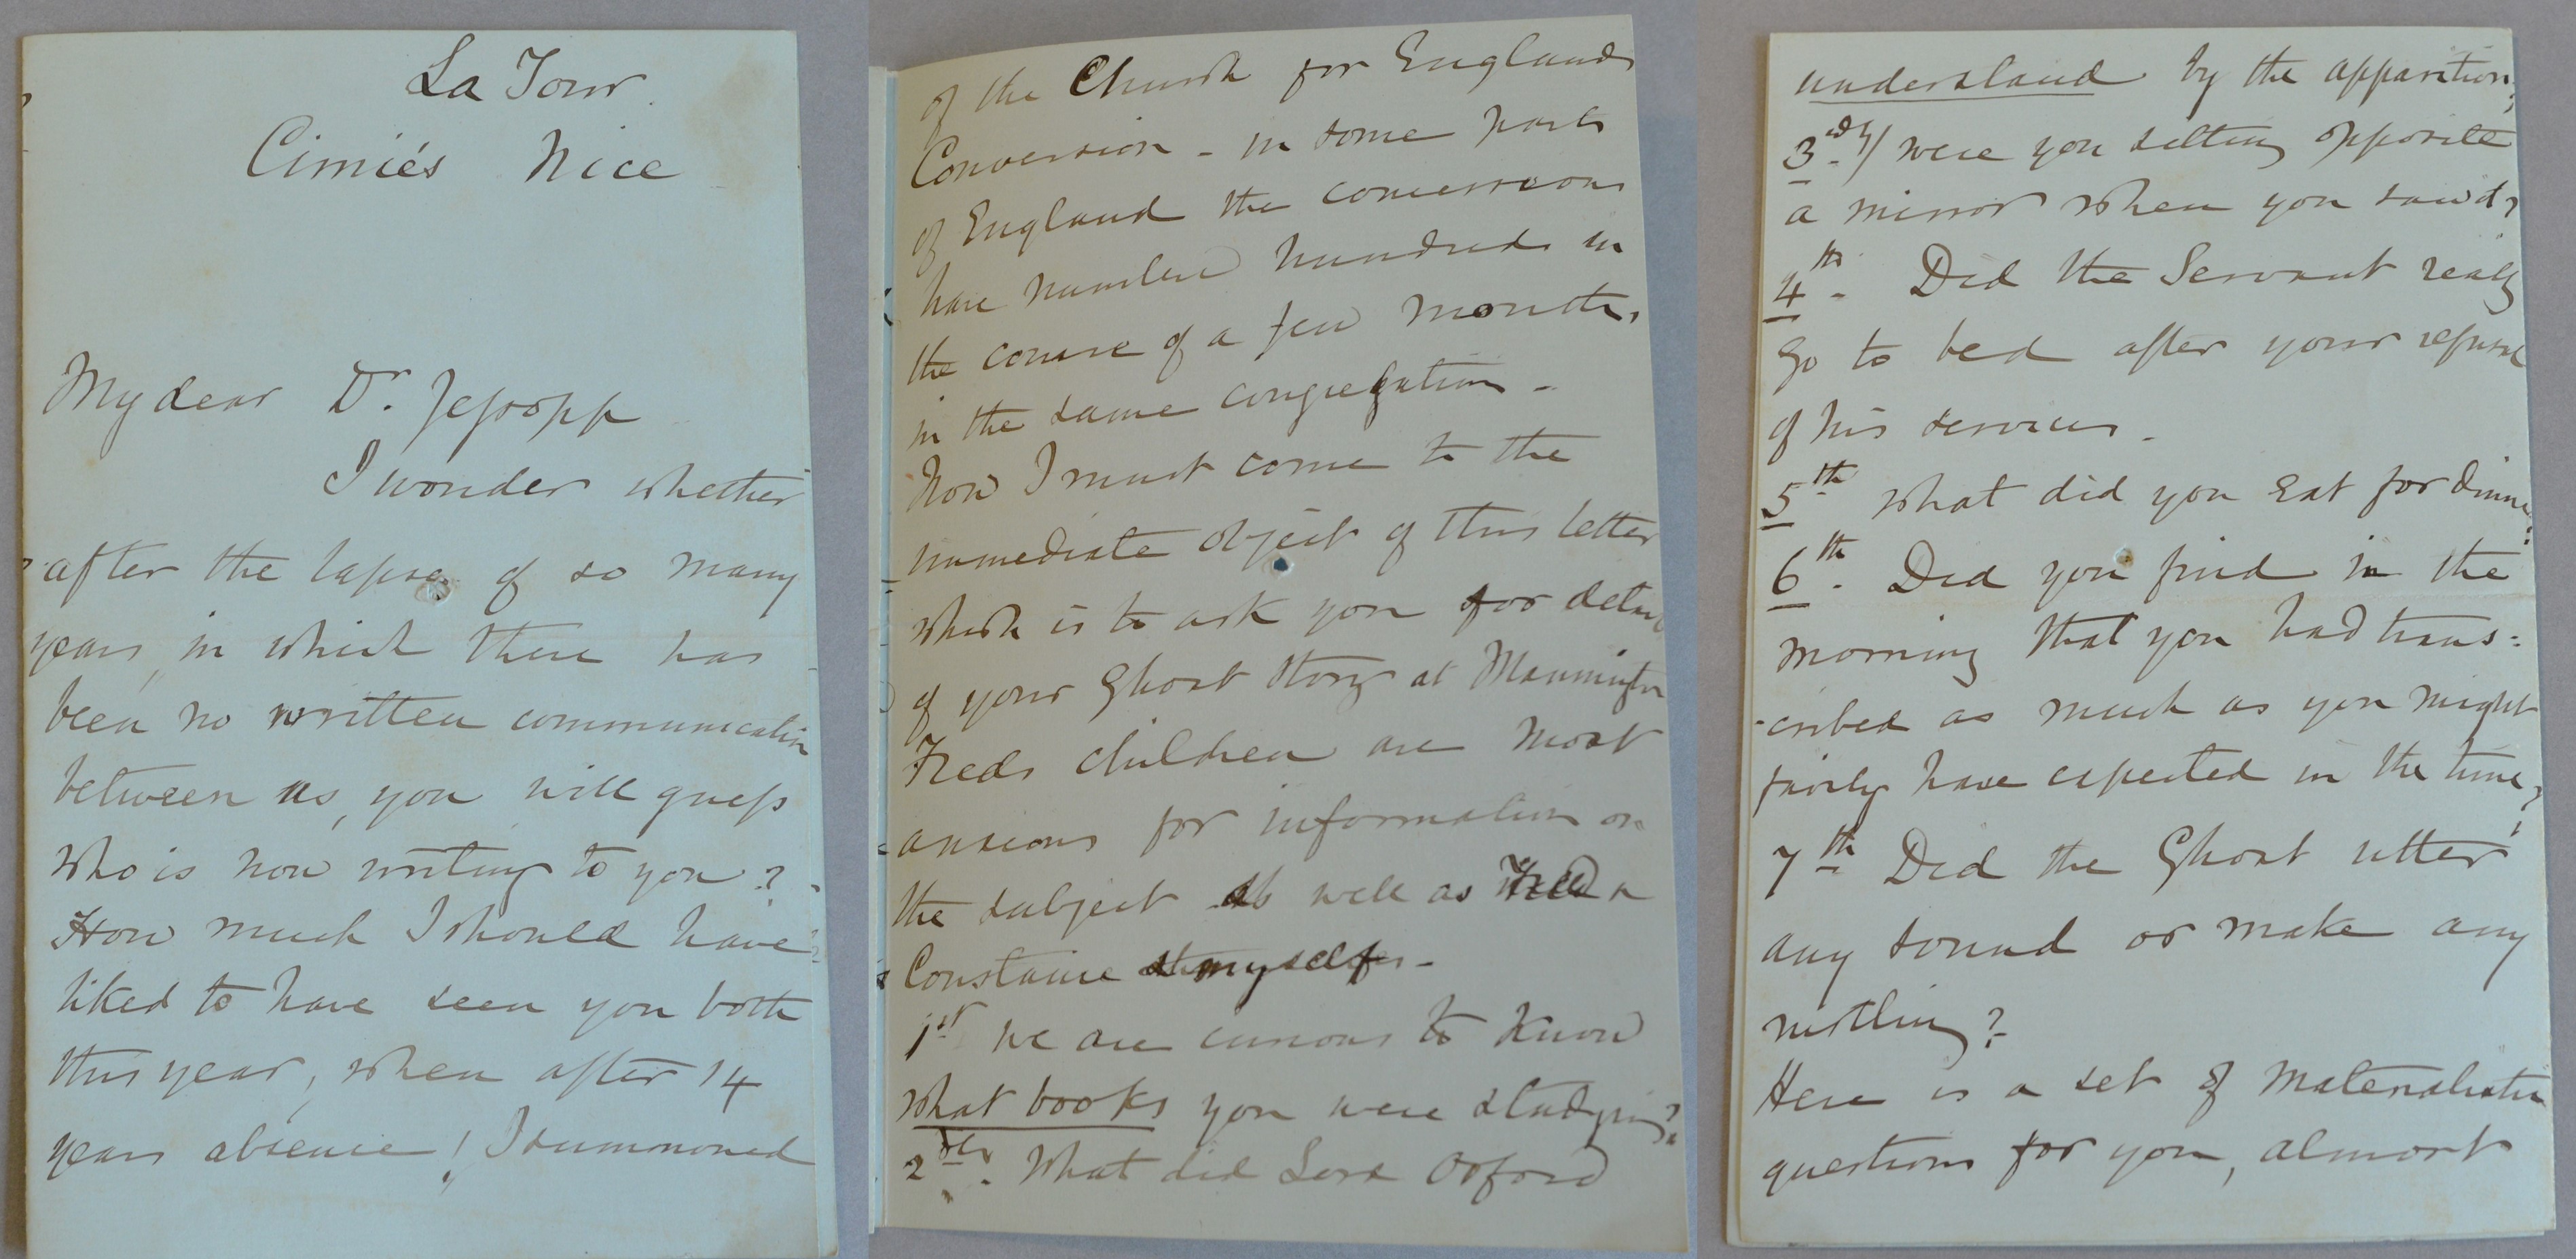 La Tour
Cimiés Nice
My dear Dr. Jessopp
I wonder whether
after the lapse of so many
years, in which there has
been no written communication
between us, you will guess
who is now writing to you?
How much I should have
liked to have seen you both
this year, when after 14
years absence! I summoned
of the Church for Englands
Conversion - in some parts
of England the conversions
have numbered hundreds in
the course of a few months,
in the same congregation -
Now I must come to the
immediate object of this letter
which is to ask you for details
of your Ghost Story at Mannington
Freds children are most
anxious for information on
the subject as well as Fred &
Constance & myself -
1st we are curious to know
what books you were studying?
2dly. What did Lord Orford
understand by the apparition?
3rdly/ were you sitting opposite
a mirror when you saw it?
4th. Did the Servant really
go to bed after your refusal
of his services.
5th what did you eat for dinner?
6th. Did you find in the
morning that you had trans=
-cribed as much as you might
fairly have expected in the time?
7th Did the Ghost utter
any sound or make any
rustling?
Here is a set of materialistic
questions for you, almost